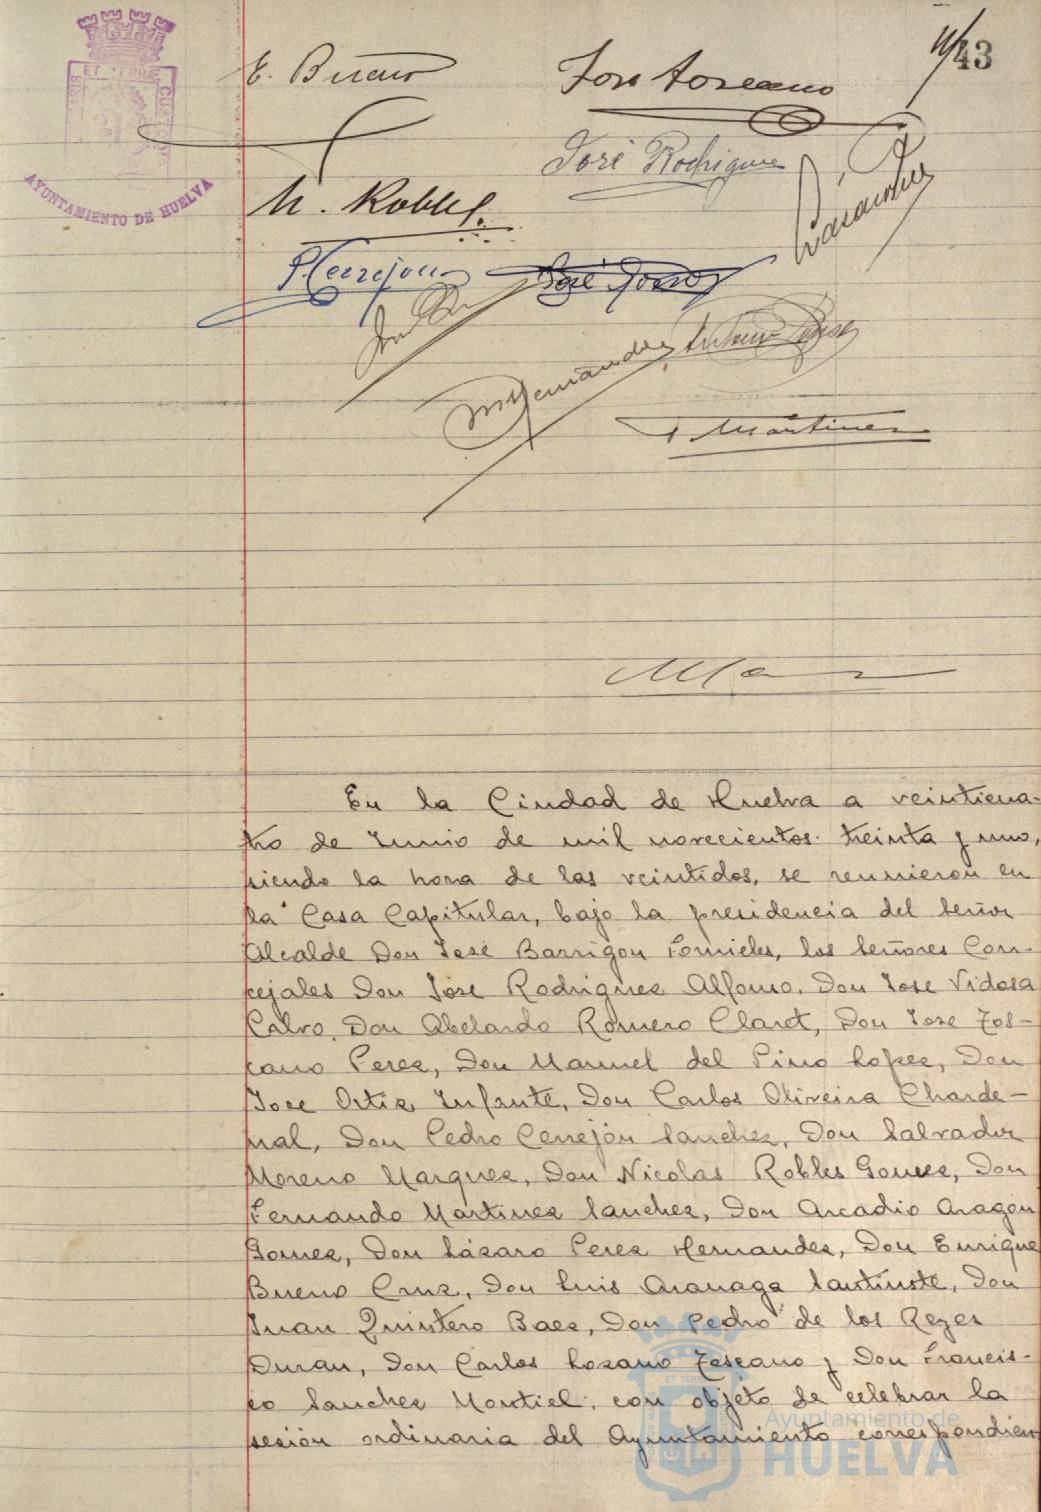 43
ET TERRÆ CUSTODIA
AYUNTAMIENTO DE HUELVA
E. Bueno
José Toscano
José Rodriguez
N. Robles
P. Cerrejon
M Hernandez
F. Martinez
En la Ciudad de Huelva a veinticua-
tro de Junio de mil novecientos treinta y uno,
siendo la hora de las veintidos, se reunieron en
la Casa Capitular, bajo la presidencia del Señor
Alcalde Don José Barrigon Fornieles, los Señores Con-
cejales Don José Rodriguez Alfonso, Don Jose Vidosa
Calvo, Don Abelardo Romero Claret, Don Jose Tos-
cano Perez, Don Manuel del Pino Lopez, Don
Jose Ortiz Infante, Don Carlos Oliveira Charde-
nal, Don Pedro Cerrejón Sanchez, Don Salvador
Moreno Marquez, Don Nicolas Robles Gomez, Don
Fernando Martinez Sanchez, Don Arcadio Aragón
Gomez, Don Lázaro Perez Hernandez, Don Enrique
Bueno Cruz, Don Luis Aranaga Santiuste, Don
Juan Quintero Baez, Don Pedro de los Reyes
Duran, Don Carlos Lozano Toscano y Don Francis-
co Sanchez Montiel, con objeto de celebrar la
sesión ordinaria del Ayuntamiento correspondien
Ayuntamiento de
HUELVA